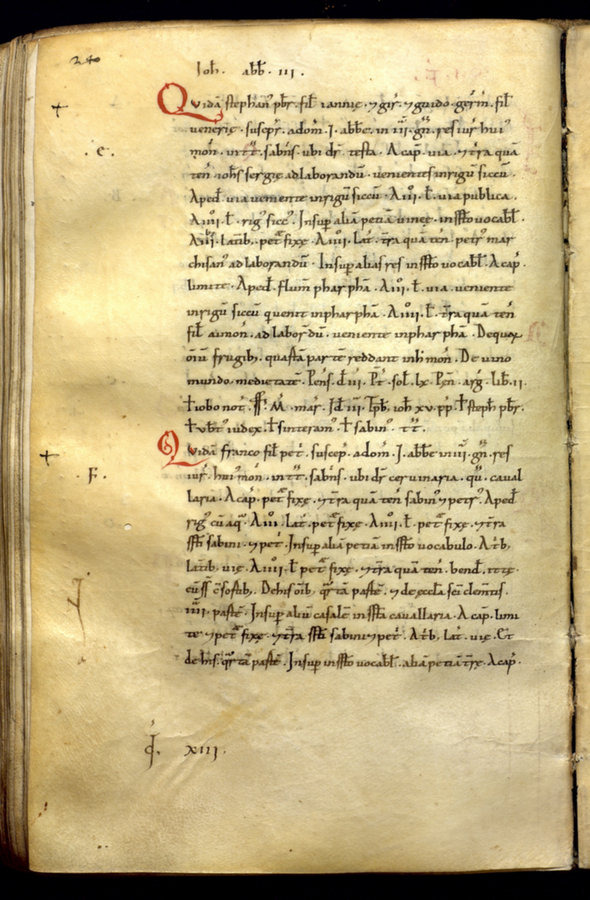 240
Ioh̅. abb̅. iii.
Quidā stephan᷒ pb̅r. fil̅ iannis. ⁊ gir̅. ⁊ guido. germ̅. fil̅
uenerię. suscep̅r. a dom̅. I. abb̅e. in iii. gn̅. res iur̅ hui᷒
mon̅. in tt̅. sabn̅s. ubi dr̅. testa. A cap̅. uia. ⁊ tr̅a quā
e.
ten̅. ioh̅s sergię ad laborandū. uenientes in rigū siccū.
A ped̅. uia ueniente in rigū siccū. A iii. l̅. uia publica.
A iiii. l̅. rig᷒ sicc᷒. Insup̅ aliā petiā uineę. in ss̅to uocabl̅.
A iii. laterib̅. pet̅ fixę. A iiii. lat̅. tr̅a quā ten̅. petr᷒ mar
chisan᷒ ad laborandū. Insup̅ alias res in ss̅to uocabl̅. A cap̅.
limite. A ped̅. flum̅ pharphā. A iii. l̅. uia ueniente
in rigū siccū q̅ uenit in pharphā. A iiii. l̅. tr̅a quā ten̅
fil̅ aimon̅. ad labor̅dū. ueniente in pharphā. De quo
om̅ium frugib̅; quartā partē reddant in h̅ mon̅. De uino
mundo. medietatē. Pens̅. d̅ iii. Pr̅t. sol̅. lx. Pen̅. arg̅. lib̅. ii.
mar̅. Id̅ iii. Tp̅b̅. ioh̅ xv. pp̅. † steph̅ pb̅r.
† ub̅t᷒ iudex. † sinteram᷒. † sabin᷒. tt̅.
Quidā franco fil̅ pet̅. suscep̅. a dom̅. I. abb̅e in iii. gn̅. res
F.
iur̅. hui᷒ mon̅. in tt̅. sabn̅s. ubi dr̅ ceruinaria. qu̅. caual
laria. A cap̅. pet̅ fixę. ⁊ tr̅a quā ten̅ sabin᷒ ⁊ petr᷒. A ped̅
rig᷒ cū aq̅. A iii. Lat̅. pet̅ fixę. A iiii. l̅. pet̅ fixę. ⁊ tr̅a
ss̅ti sabini. ⁊ pet̅. Insup̅ aliā petiā in ss̅to uocabulo. A tb̅.
laterib̅. uię. A iiii. l̅ pet̅ fixę. ⁊ tr̅a quā ten̅. bened̅.
De his om̅ib̅. q̅rtā partē. ⁊ de eccl̅a sc̅i clem̅tis.
iiii. partē. Insup̅ aliū casalē in ss̅ta cauallaria. A cap̅. limi
te ⁊ pet̅ fixę. ⁊ tr̅a ss̅ti sabini ⁊ pet̅. A tb̅. lat̅. uię. Et
de his. q̅rtā partē. Insup̅ in ss̅to uocabl̅. aliā petiā tr̅ę. A cap̅.
xiii.